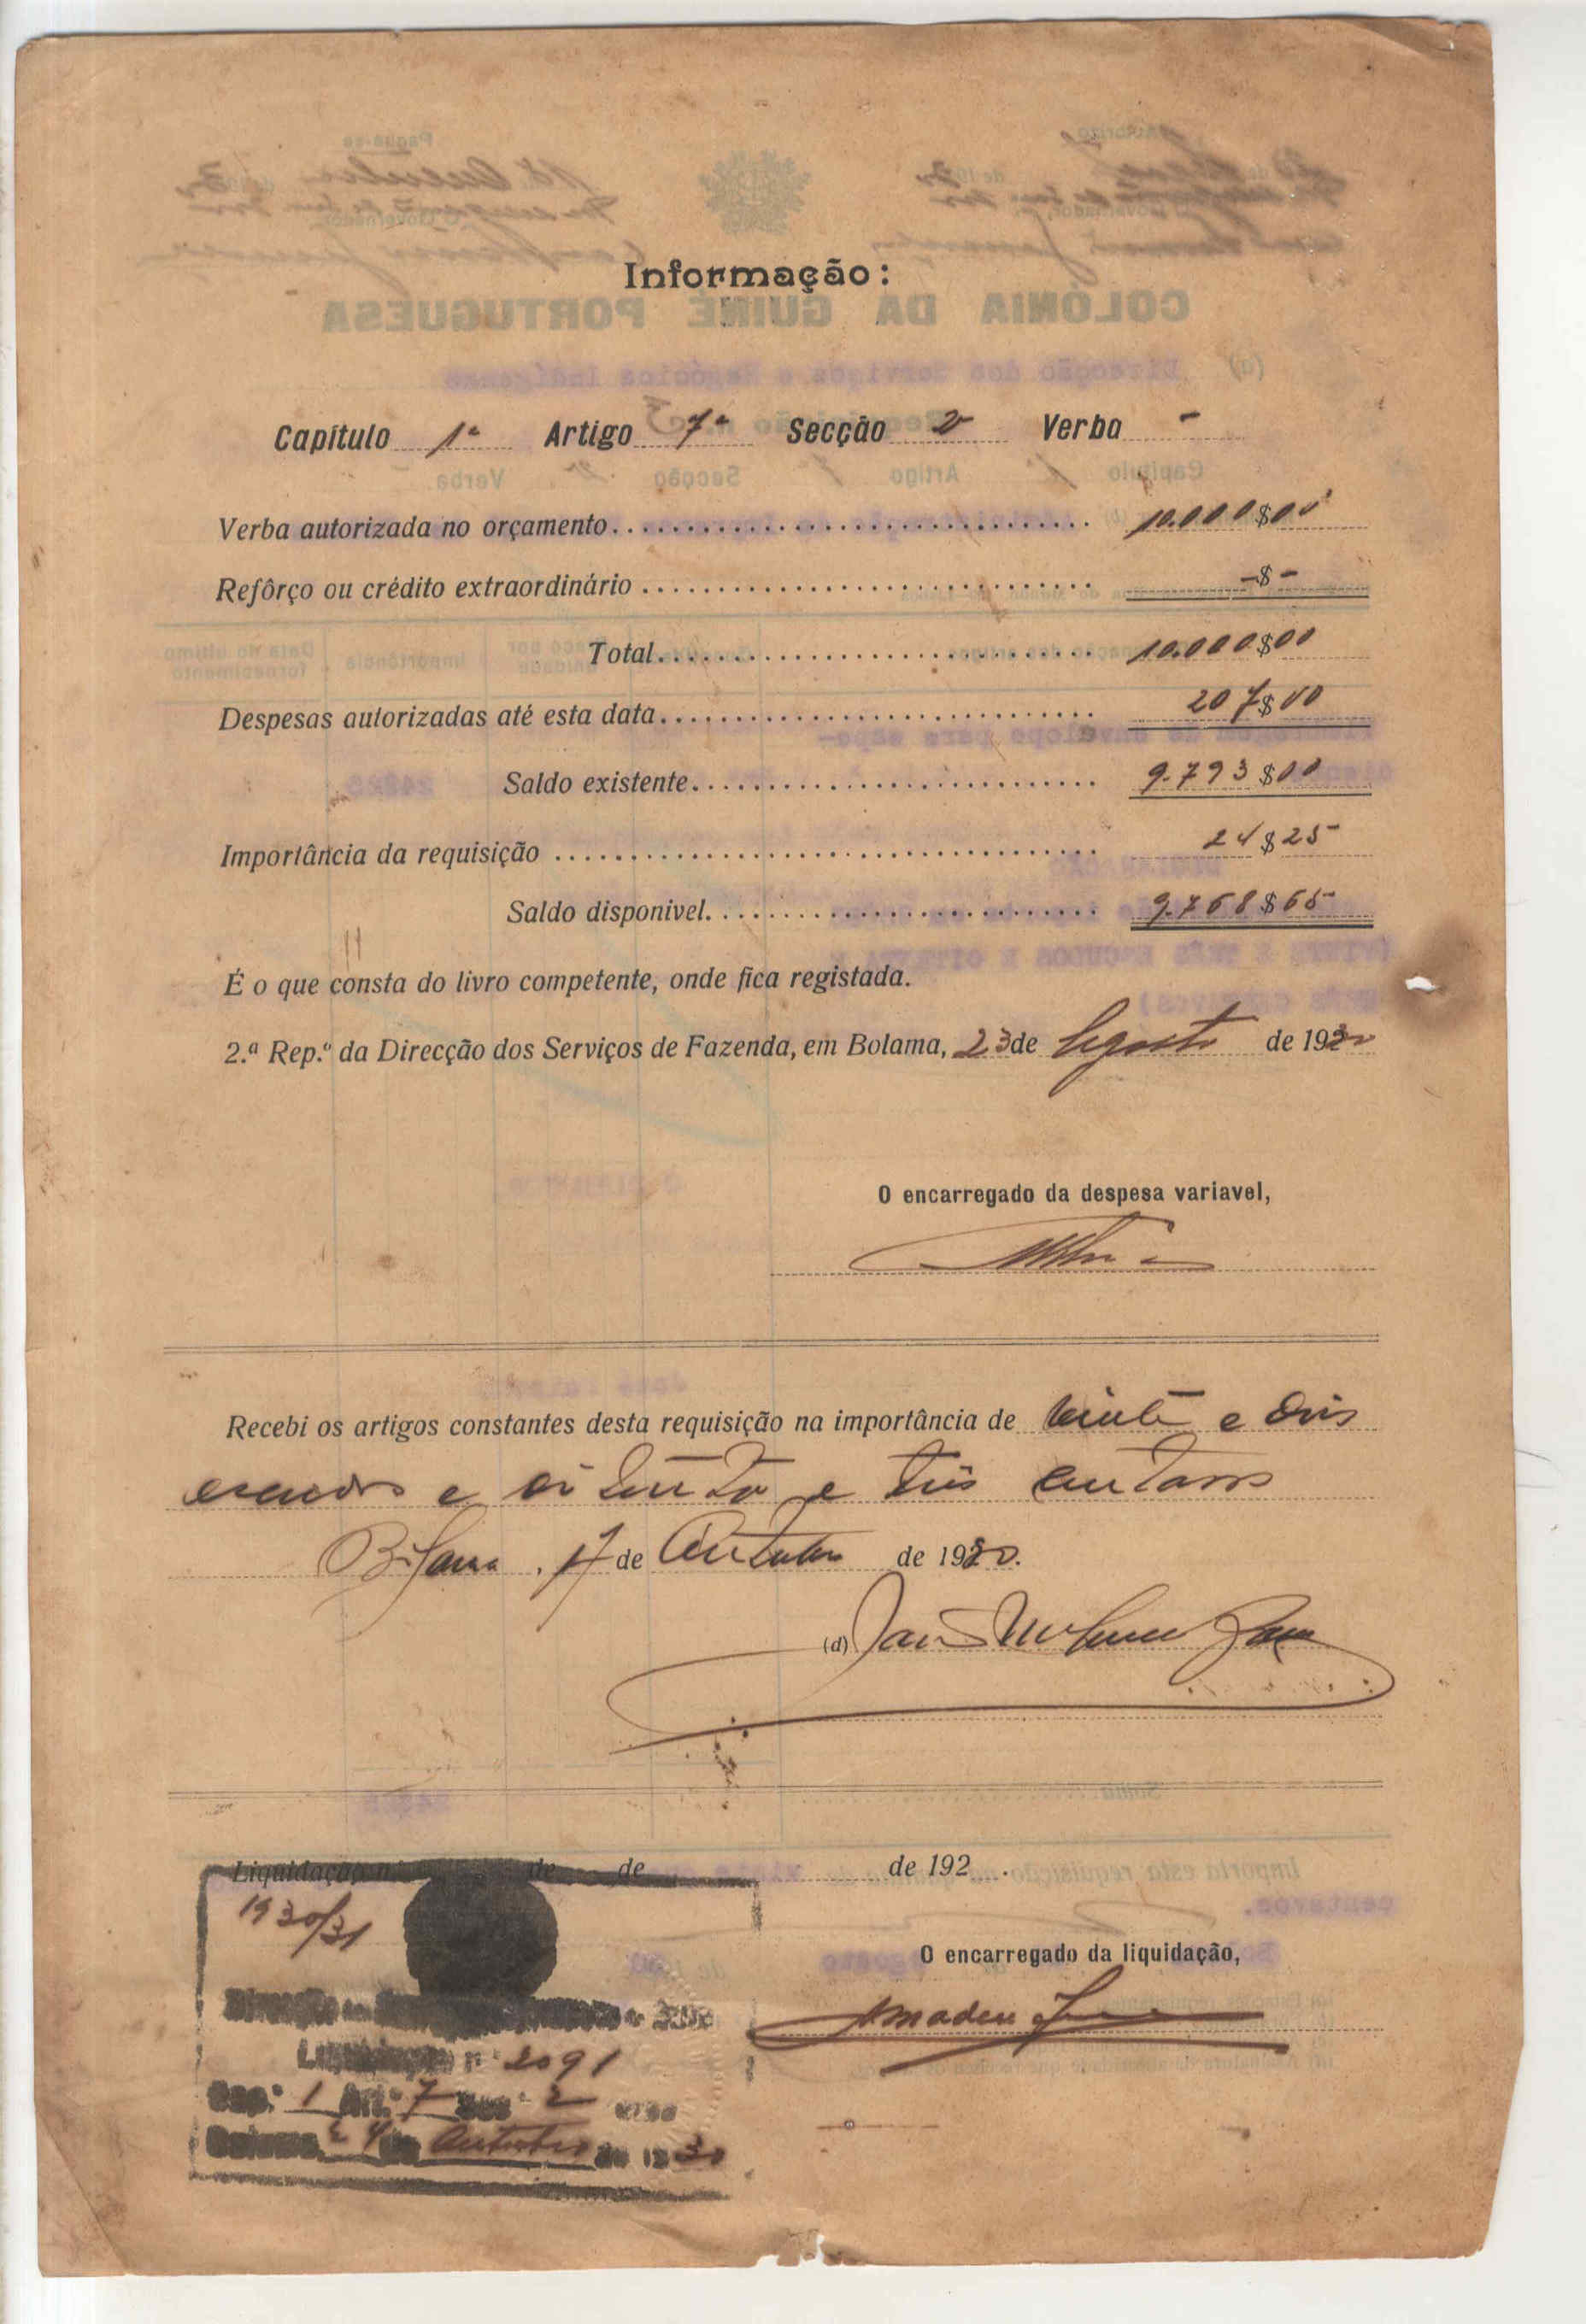 Informação:
Capítulo 1º Artigo 7º Secção 2ª Verba -
Verba autorizada no orçamento 10.000$00
Refôrço ou crédito extraordinário -$-
Total 10.000$00
Despesas autorizadas até esta data 207$00
Saldo existente 9.793$00
Importância da requisição 24$25
Saldo disponivel 9.768$65
É o que consta do livro competente, onde fica registada.
2.ª Rep.º da Direcção dos Serviços de Fazenda, em Bolama, 23 de Agosto de 1930
O encarregado da despesa variavel,
Recebi os artigos constantes desta requisição na importância de vinte e dois
escudos e oitenta e três centavos
Bolama, 17 de Outubro de 1930.
(d)
Liquidação n.º de de de 192 .
1930/31
O encarregado da liquidação,
Amadeu
Liquidação nº 2091
Cap.º 1 Art.º 7 Sec 2
Bolama, 24 de Outubro de 1930